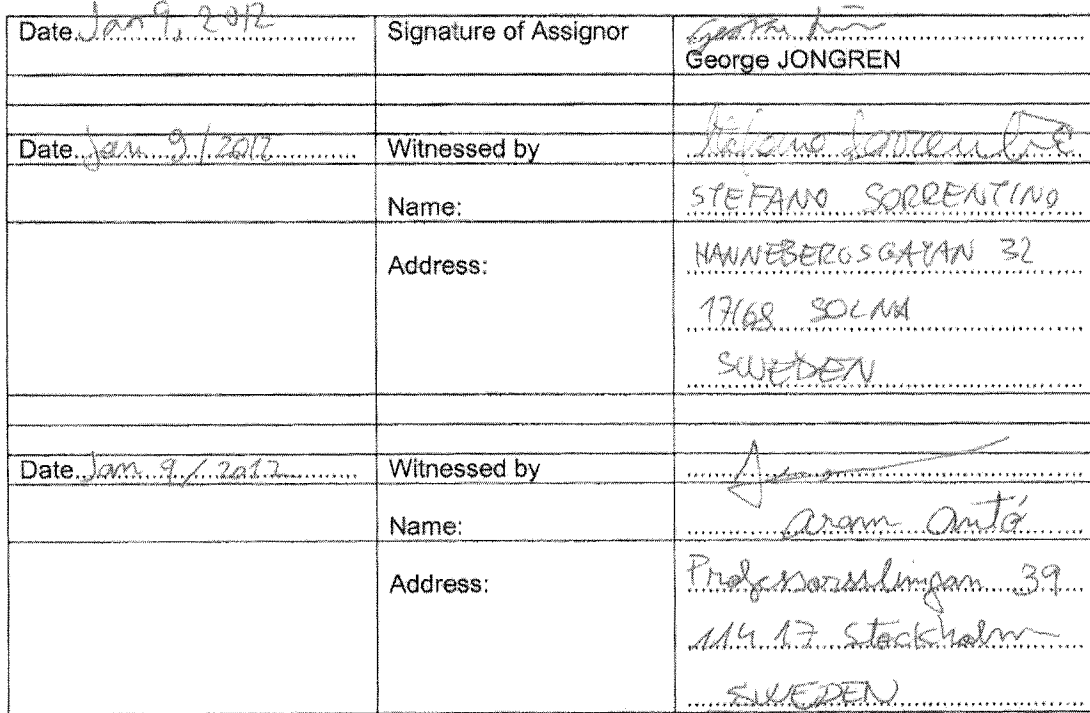 Date Jan 9, 2012 Signature of Assignor
George JONGREN
Date Jan 9/2012 Witnessed by Stefano Sorrentino
Name: STEFANO SORRENTINO
Address: HANNEBERGSGATAN 32
17168 SOLNA
SWEDEN
Date Jan 9/2012 Witnessed by
Name: aram antó
Address: Professorsslingan 39
114 17 Stockholm
SWEDEN